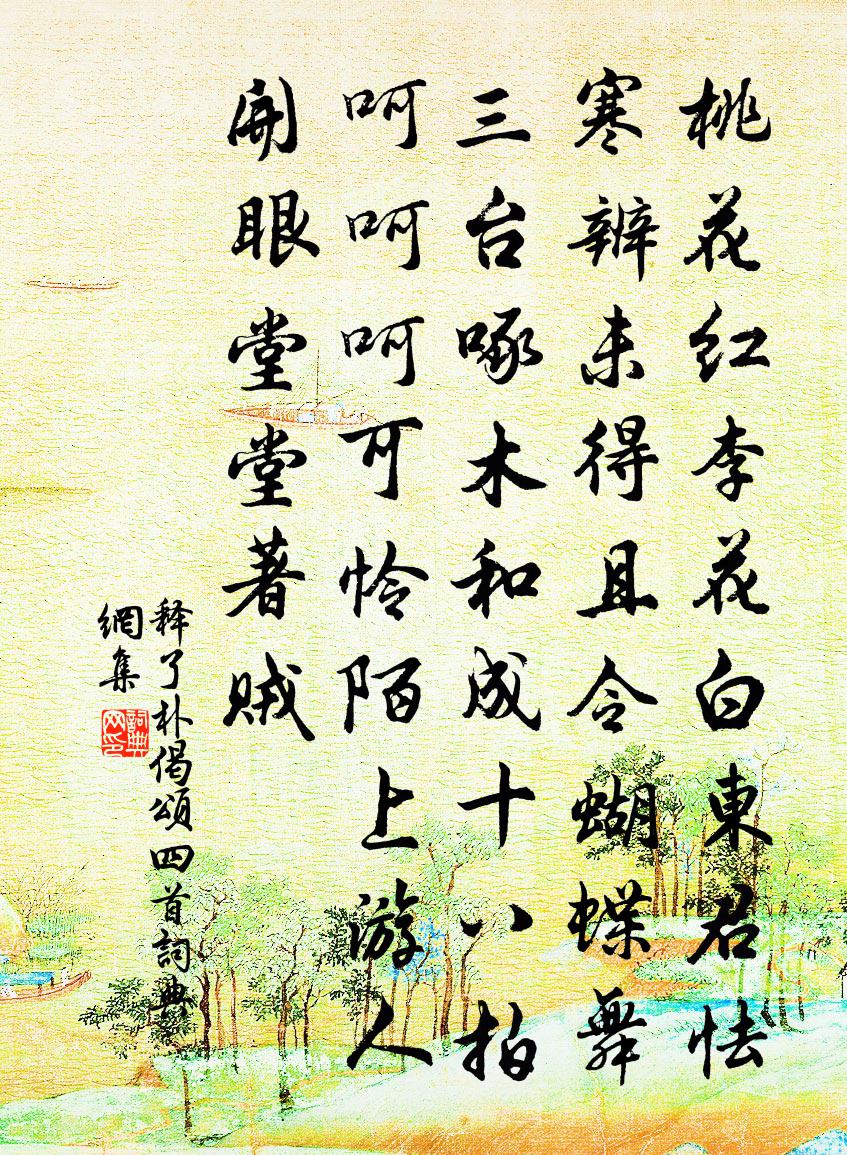 桃花红李花白東君怯
寒辨未得且令蝴蝶舞
三台啄木和成十八拍
呵呵呵可怜陌上游人
開眼堂堂著贼
释了朴偈颂四首詞典
網集
詞典網印